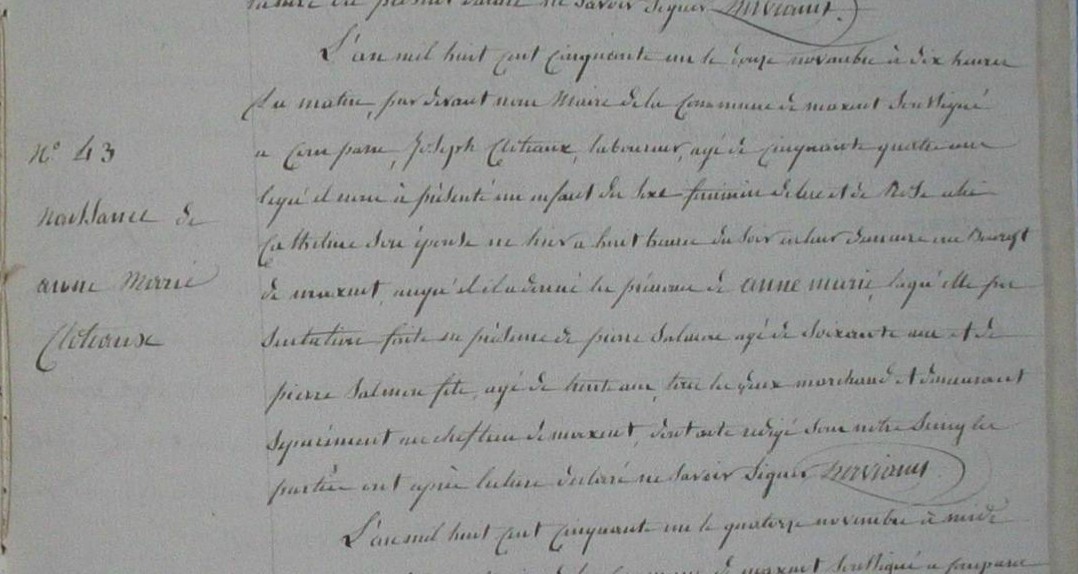 ne savoir signer
L'an mil huit cent cinquante un le douze novembre à dix heures
du matin, par devant nous Maire de la Commune de maxent soussigné
a Comparu, Joseph Cloteaux, laboureur, agé de cinquante quatre ans
lequel nous à présenté un enfant du sexe feminin de lui et de Rose
son épouse né hier a huit heures du soir en leur demeure au Bourg
de maxent, auquel il a donné les prénoms de anne marie, laquelle pre
sentation faite en présence de pierre Salmon agé de soixante ans et de
pierre Salmon fils, agé de trente ans, tous les deux marchands et demeurant
séparément au chef lieu de maxent, dont acte redigé sous notre seing les
parties ont après lecture declaré ne savoir signer
L'an mil huit cent cinquante un le quatorze novembre à midi
de la Commune de maxent soussigné a comparu
N° 43
naissance de
anne Marie
Cloteaux